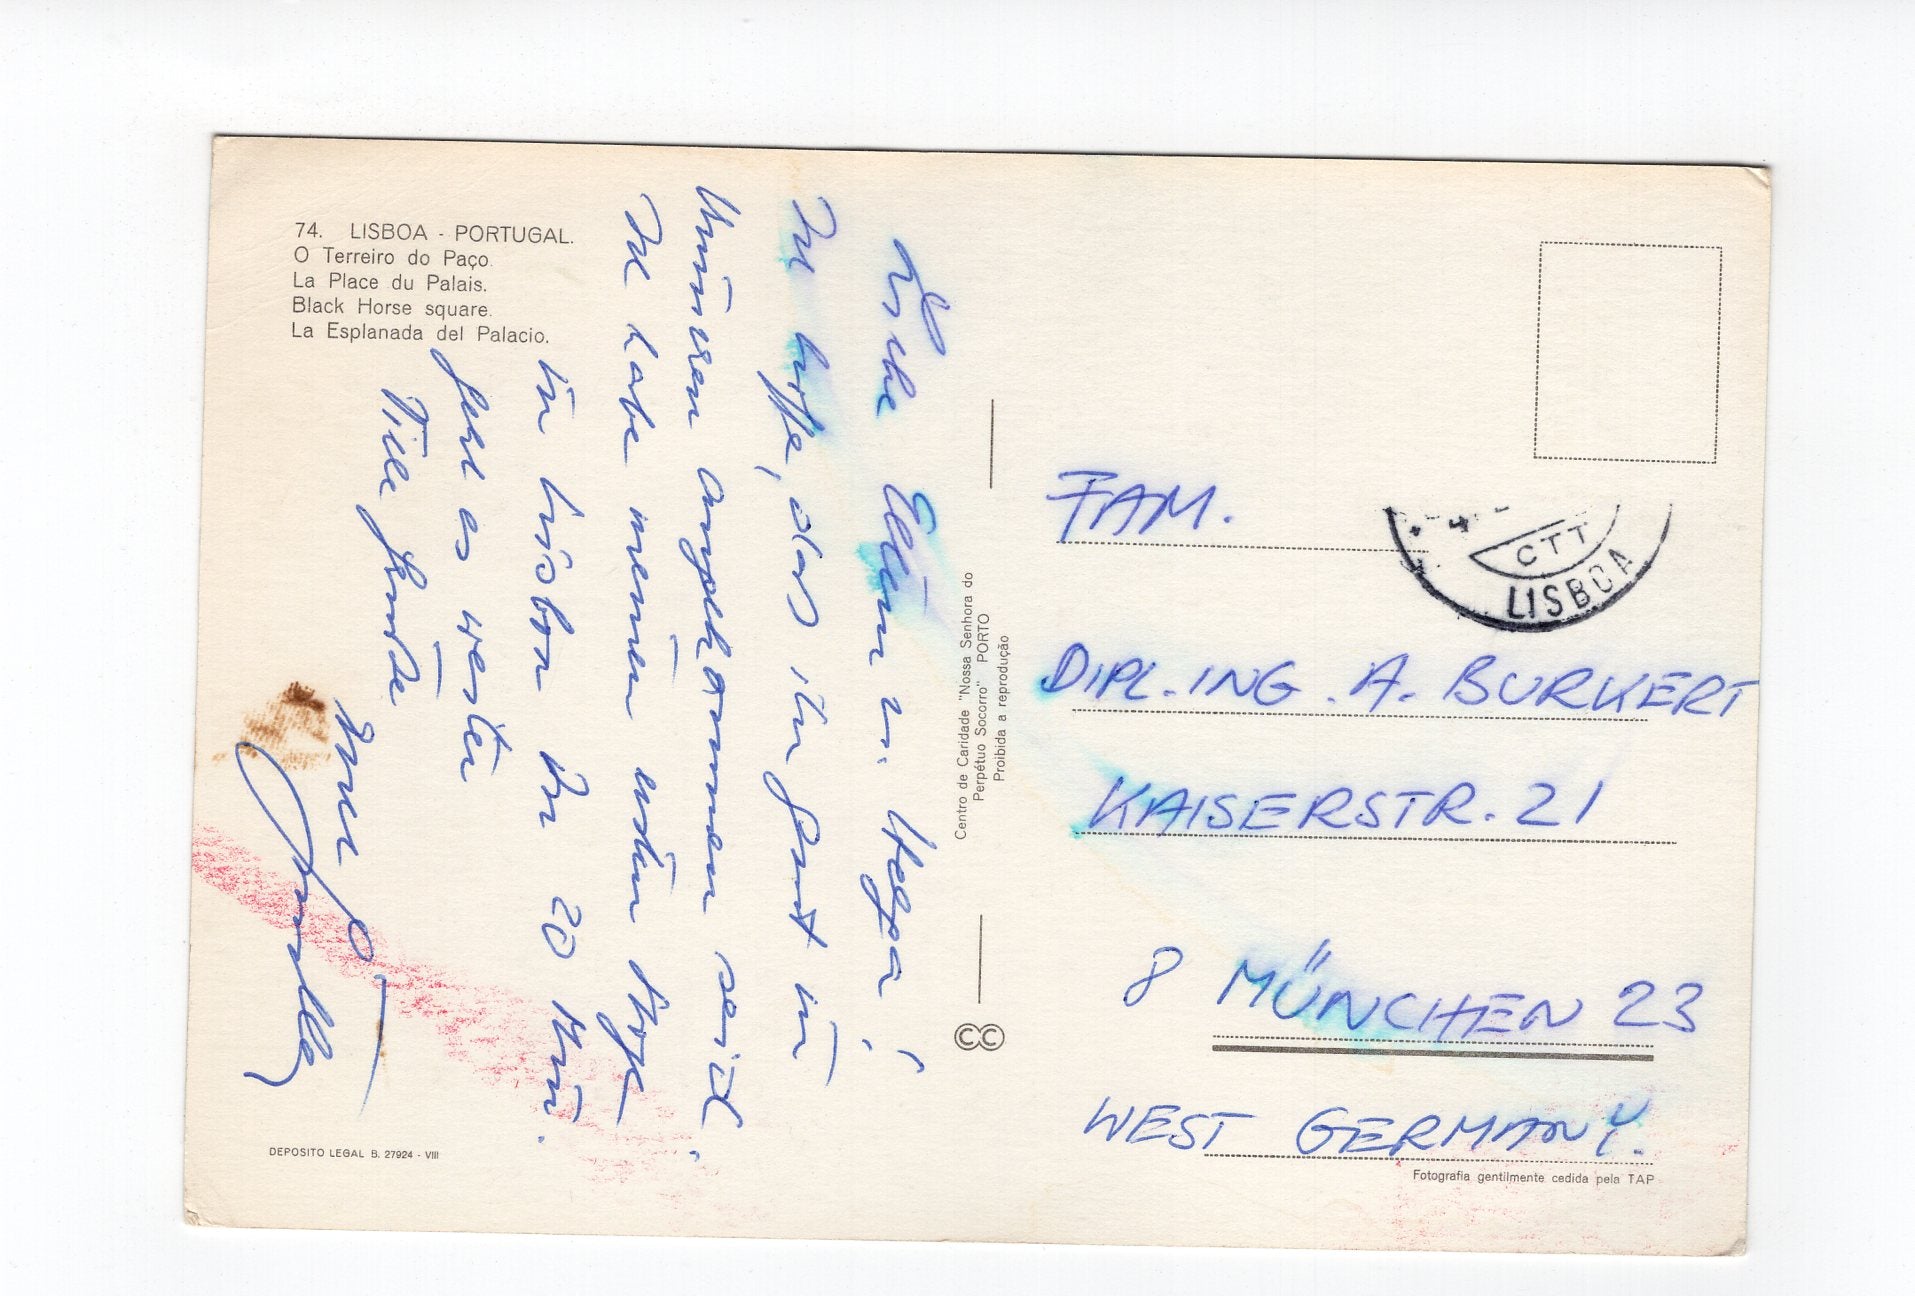 74. LISBOA - PORTUGAL.
O Terreiro do Paço.
La Place du Palais.
Black Horse square.
La Esplanada del Palacio.
Liebe Eltern u. Helga!
Ich hoffe, dass ihr gut in
München angekommen seid.
Ich habe meinen ersten Stop
in Lissabon für 20 Min.
geht es weiter
Viele Grüße
Euer
Centro de Caridade "Nossa Senhora do
Perpétuo Socorro" PORTO
Proibida a reprodução
CC
CTT
LISBOA
FAM.
DIPL.ING. A. BURKERT
KAISERSTR. 21
8 MÜNCHEN 23
WEST GERMANY.
DEPOSITO LEGAL B. 27924 - VIII
Fotografia gentilmente cedida pela TAP